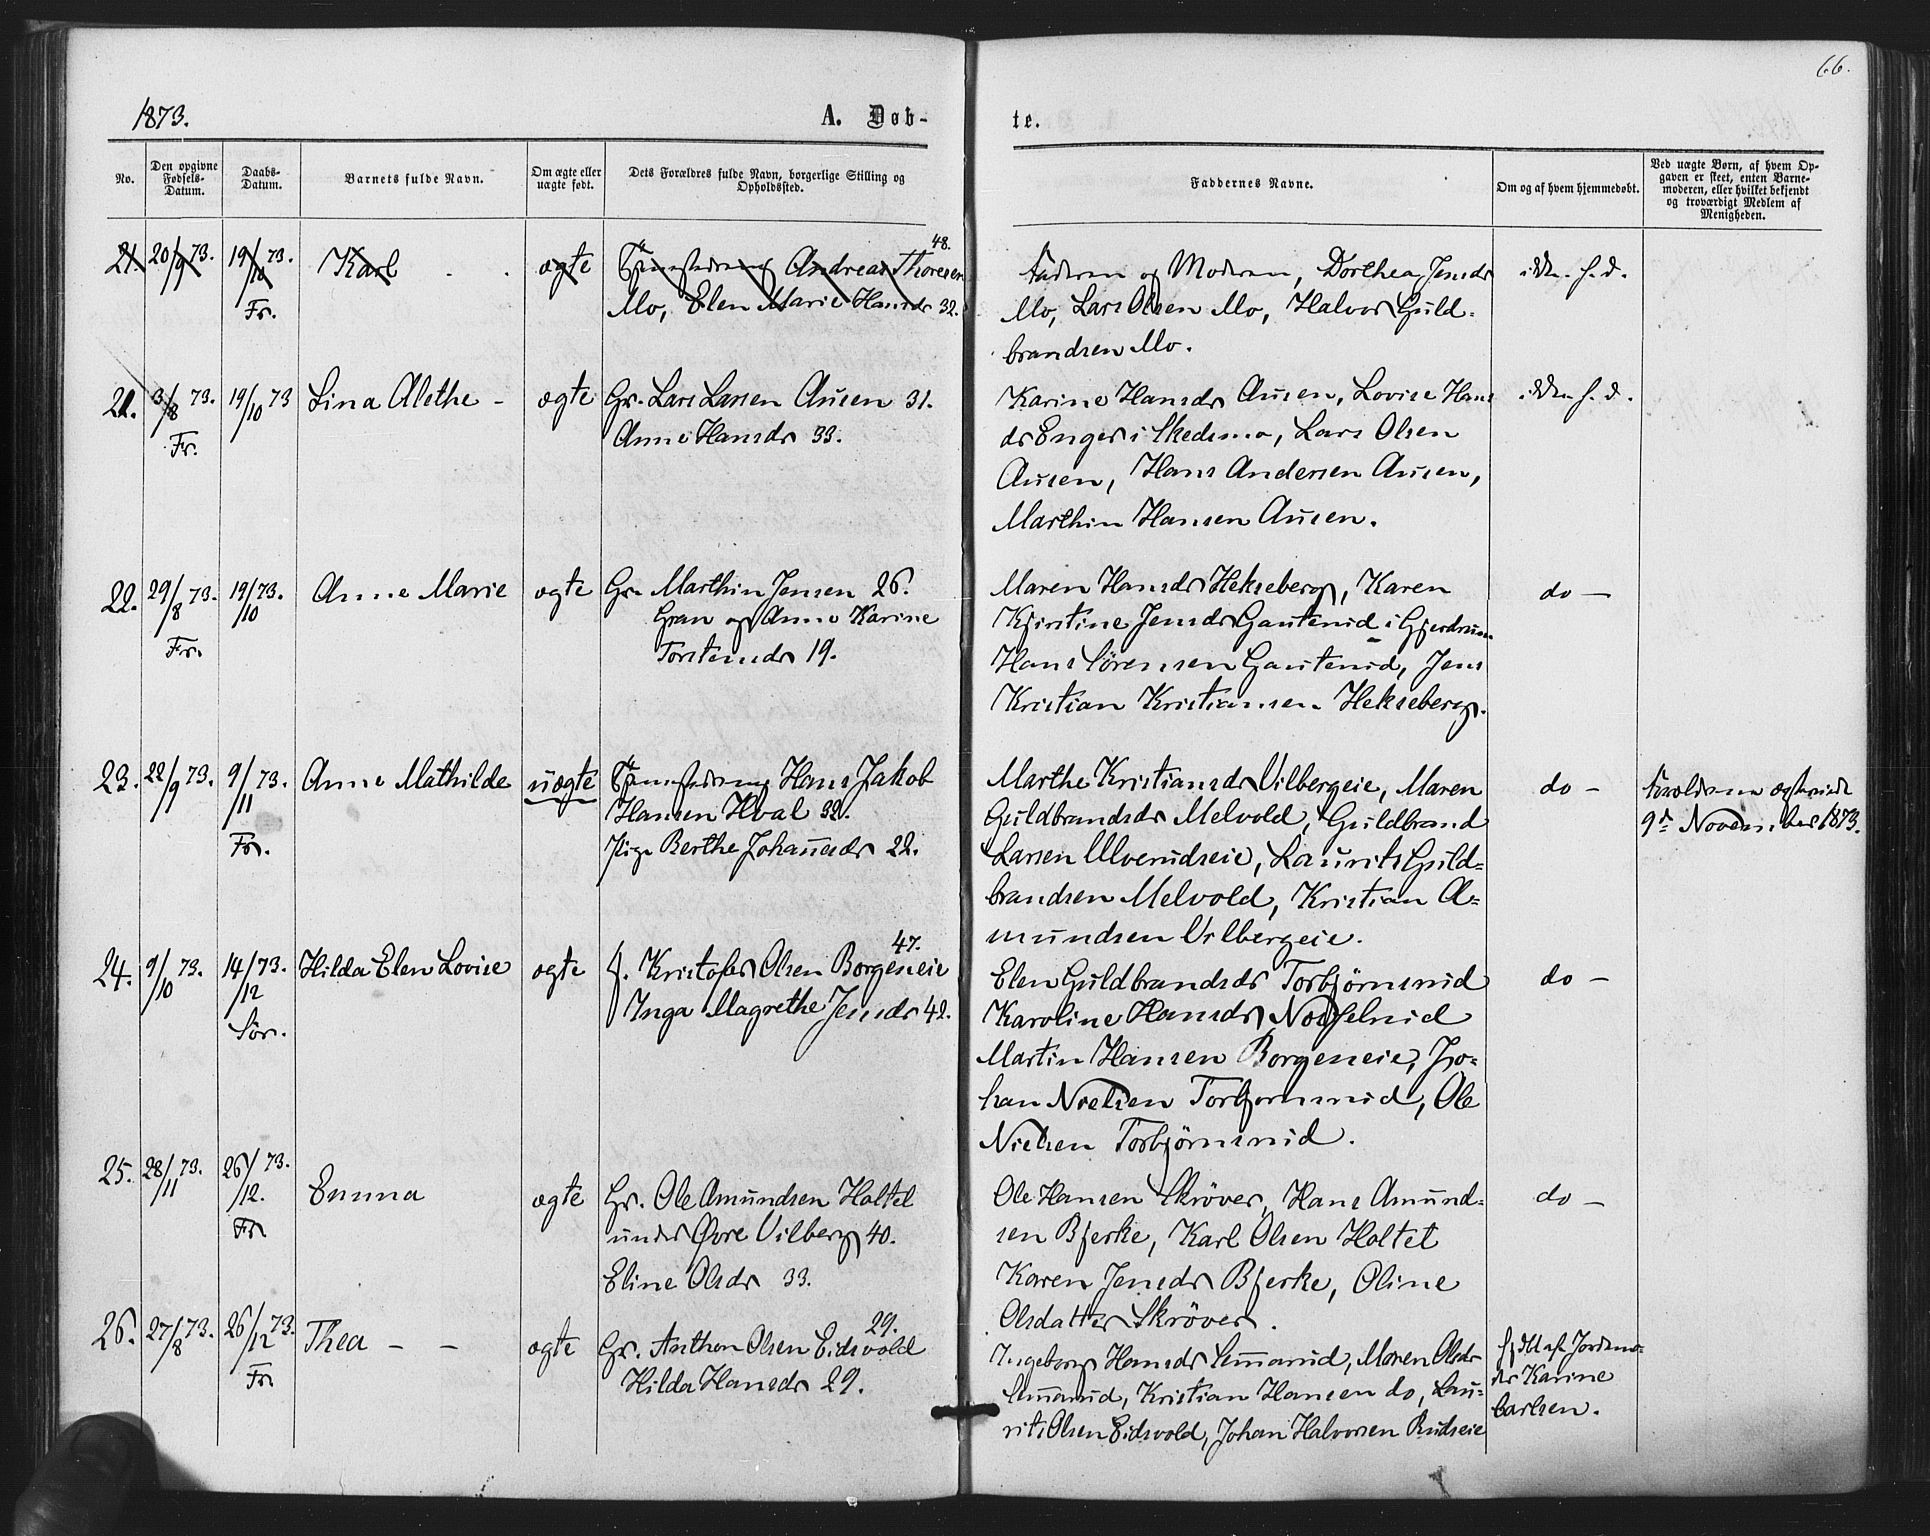 66.
1873.
A. Døb-
te.
No.
Den opgivne Fødsels-Datum.
Daabs-Datum.
Barnets fulde Navn.
Om ægte eller uægte født.
Dets Forældres fulde Navn, borgerlige Stilling og Opholdssted.
Faddernes Navne.
Om og af hvem hjemmedøbt.
Ved uægte Børn, af hvem Opgaven er skeet, enten Barnemoderen, eller hvilket bekjendt og troværdigt Medlem af Menigheden.
21. 20/9 73. 19/10 73. Fr. Karl - - ægte Andreas Thoresen 48.
Mo, Elen Marie Hansdr 32.
Faderen og Moderen, Dorthea Jensdr
Mo, Lars Olsen Mo, Halvor Guld-
brandsen Mo.
ikke h. d.
21. 3/8 73. Fr. 19/10 73 Lina Alethe - ægte Gr. Lars Larsen Ausen 31.
Anne Hansdr 33.
Karine Hansdr Ausen, Lovise Hans
dr Enger i Skedsmo, Lars Olsen
Ausen, Hans Andersen Ausen,
Marthin Hansen Ausen.
ikke h. d.
22. 29/8 73. Fr. 19/10 73. Anne Marie ægte Gr. Marthin Jensen 26.
Gran og Anne Karine
Torstensdr 19.
Maren Hansdr Hekseberg, Karen
Kjirstine Jensdr Gauterud i Gjerdrum
Hans Sörensen Gauterud, Jens
Kristian Kristiansen Hekseberg.
do —
23. 22/9 73. 9/11 73. Fr. Anne Mathilde uægte Hans Jakob
Hansen Hval 32.
Pige Berthe Johannesdr 22.
Marthe Kristiansdr Vilbergeie, Maren
Guldbrandsdr Melvold, Guldbrand
Larsen Ulverudseie, Laurits Guld-
brandsen Melvold, Kristian A-
mundsen Vilbergeie.
do —
Forældrene ægteviede
9de November 1873.
24. 9/10 73. 14/12 73. Sör. Hilda Elen Lovise ægte f. Kristofer Olsen Borgeneie 47.
Inga Magrethe Jensdr 42.
Elen Guldbrandsdr Torbjörnsrud
Karoline Hansdr
Martin Hansen Borgeneie, Jo-
han Nielsen Torbjornsrud, Ole
Nielsen Torbjörnsrud.
do —
25. 28/11 73. 26/12 73. Fr Emma ægte Gr. Ole Amundsen Holtet
under Øvre Vilberg 40.
Eline Olsdr 33.
Ole Hansen Skröver, Hans Amund-
sen Bjerke, Karl Olsen Holtet
Karen Jensdr Bjerke, Oline
Olsdatter Skröver.
do —
26. 27/8 73. 26/12 73. Fr. Thea - - ægte Gr. Anthon Olsen Eidsvold 29.
Hilda Hansdr 29.
Ingeborg Hansdr Semmerud, Maren Olsdr
Semmerud, Kristian Hansen do, Lau-
rits Olsen Eidsvold, Johan Halvorsen Rudseie
hjdbt af Jordemo-
der Karine
Carlsen.